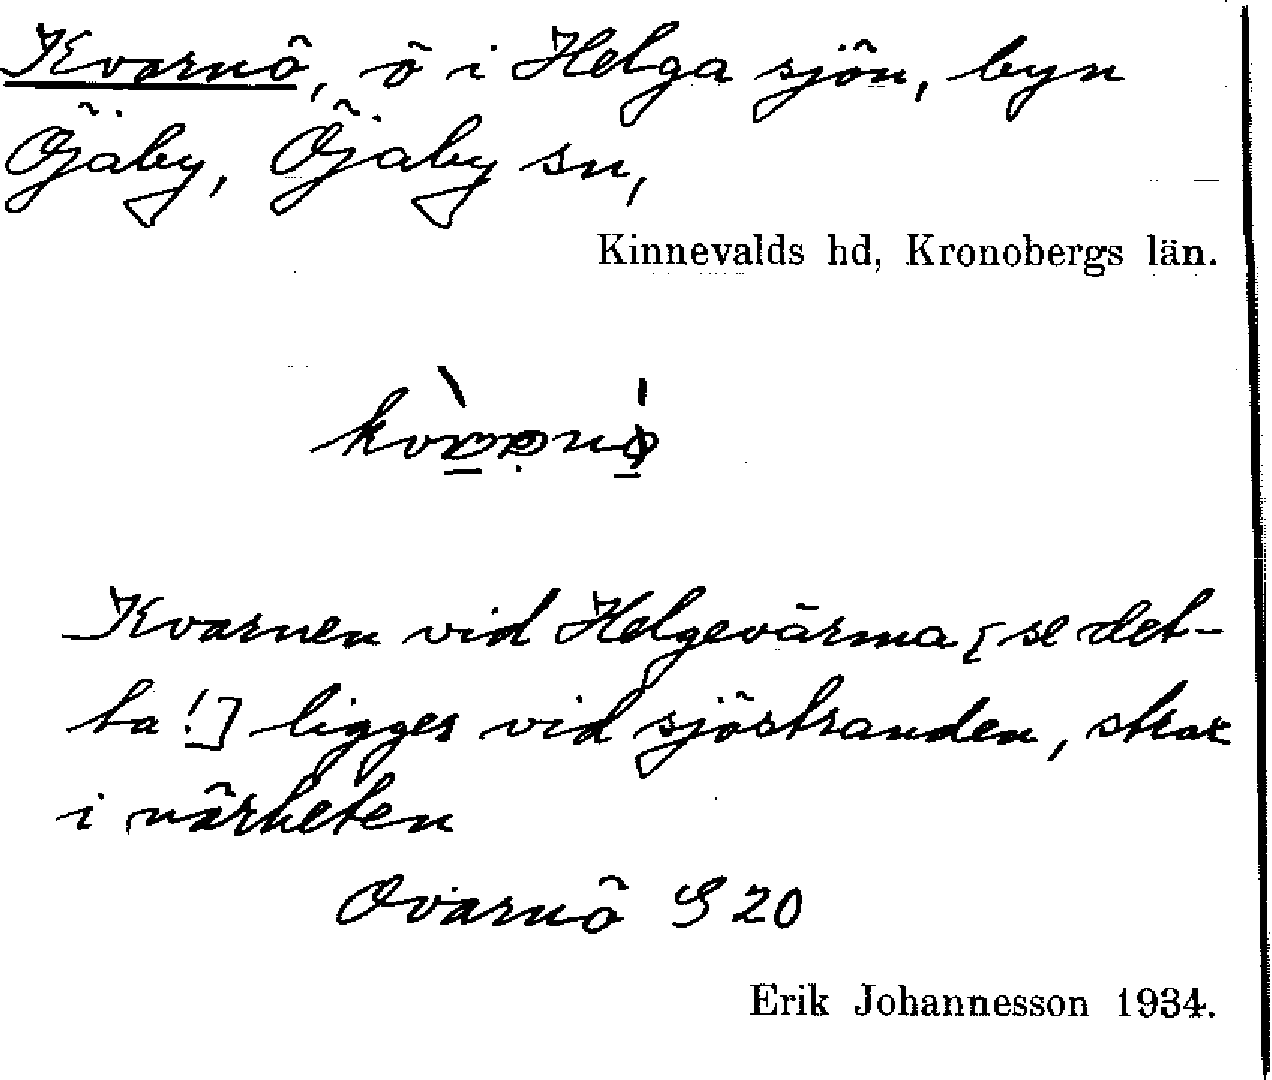 Kvarnö, ö i Helga sjön, byn
Öjaby, Öjaby sn,
Kinnevalds hd, Kronobergs län.
Kvarnen vid Helgevärma [se det-
ta!] ligger vid sjöstranden, strax
i närheten
Qvarnö S 20
Erik Johannesson 1934.